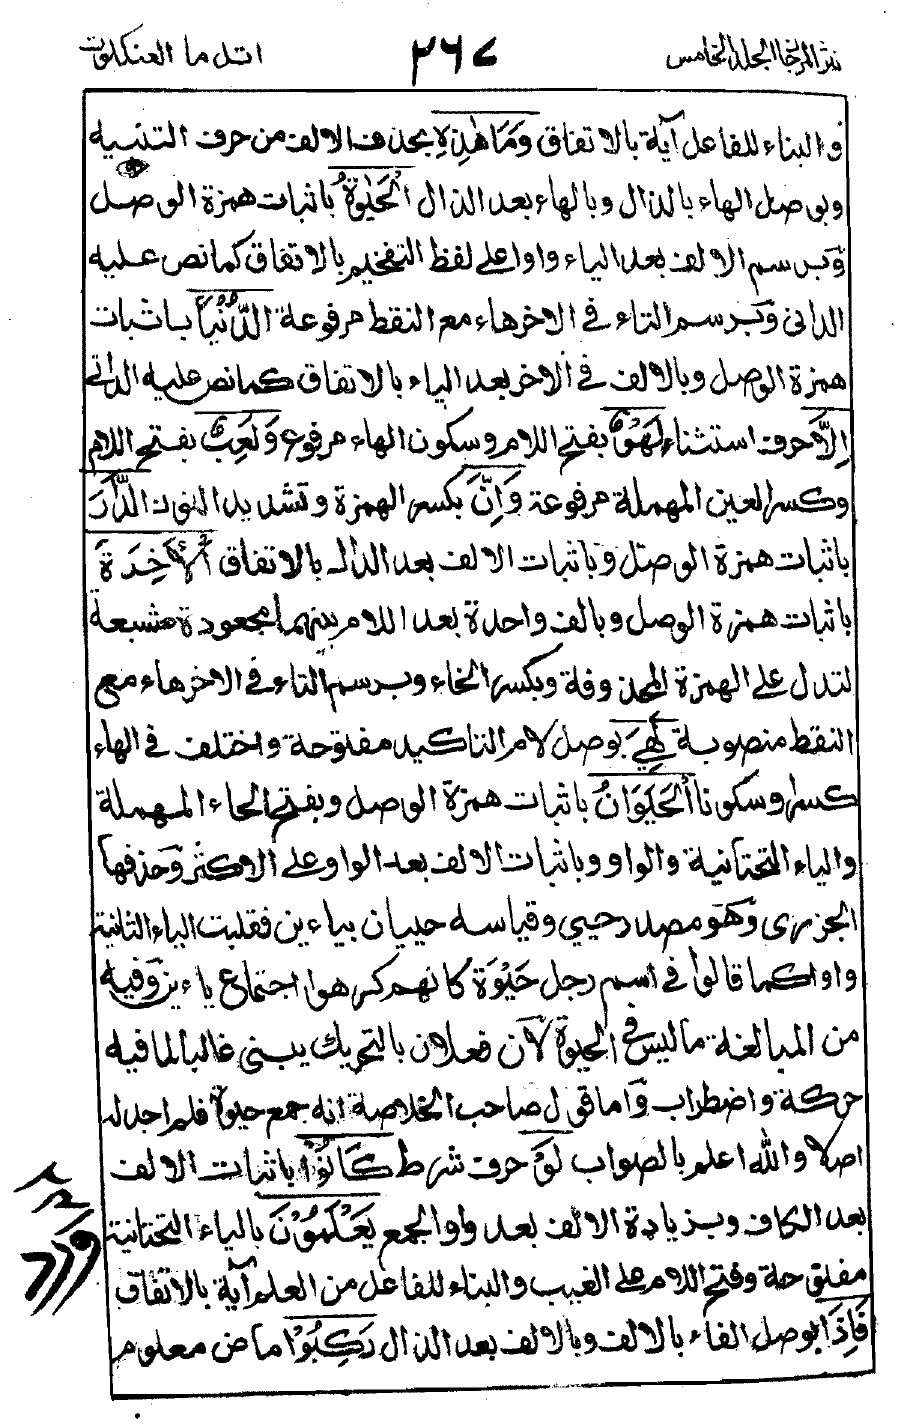 نثر المرجان المجلد الخامس ٢٦٧ اتل ما العنكبوت
والبناء للفاعل آية بالاتفاق وَمَا هٰذِهِ بحذف الالف من حرف التنبيه
وبوصل الهاء بالذال وبالهاء بعد الذال الْحَيٰوةُ باثبات همزة الوصل
وبرسم الالف بعد الياء واوا على لفظ التفخيم بالاتفاق كما نص عليه
الدانى وبرسم التاء فى الاخر هاء مع النقط مرفوعة الدُّنْيَا باثبات
همزة الوصل وبالالف فى الاخر بعد الياء بالاتفاق كما نص عليه الدانى
اِلَّا حرف استثناء لَهْوٌ بفتح اللام وسكون الهاء مرفوع وَلَعِبٌ بفتح اللام
وكسر العين المهملة مرفوعة وَاِنَّ بكسر الهمزة وتشديد النون الدَّارَ
باثبات همزة الوصل وباثبات الالف بعد الدال بالاتفاق الْاٰخِرَةَ
باثبات همزة الوصل وبالف واحدة بعد اللام بينهما مجعودة مشبعة
لتدل على الهمزة المحذوفة وبكسر الخاء وبرسم التاء فى الاخر هاء مع
النقط منصوبة لَهِيَ بوصل لام التاكيد مفتوحة واختلف فى الهاء
كسرا وسكونا الْحَيَوَانُ باثبات همزة الوصل وبفتح الحاء المهملة
والياء التحتانية والواو وباثبات الالف بعد الواو على الاكثر وحذفها
الجزرى وهو مصدر حيي وقياسه حييان بياءين فقلبت الياء الثانية
واوا كما قالوا فى اسم رجل حَيْوَة كانهم كرهوا اجتماع ياءين وفيه
من المبالغة ما ليس فى الحيوة لان فعلان بالتحريك يبنى غالبا لما فيه
حركة واضطراب واما قول صاحب الخلاصة انه جمع حيوة فلم اجد له
اصلا والله اعلم بالصواب لَوْ حرف شرط كَانُوْا باثبات الالف
بعد الكاف وبزيادة الالف بعد واو الجمع يَعْلَمُوْنَ بالياء التحتانية
مفتوحة وفتح اللام على الغيب والبناء للفاعل من العلم آية بالاتفاق
فَاِذَا بوصل الفاء بالالف وبالالف بعد الذال رَكِبُوْا ماض معلوم